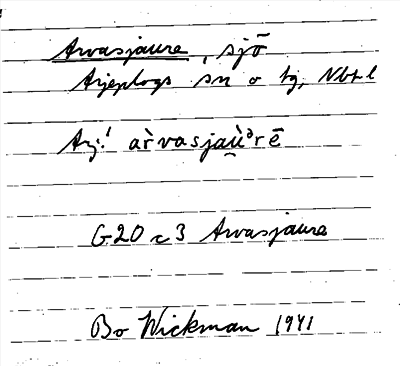 Arvasjaure, sjö
Arjeplogs sn o tg, Nbt. l
Arj.: àr̀vasjaù̯ᵊrē
G20 c3 Arvasjaure
Bo Wickman 1941